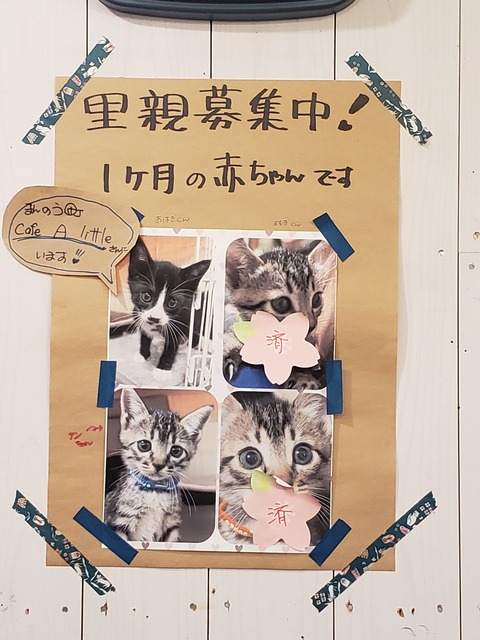 里親募集中!
1ケ月の赤ちゃんです
まんのう町
Cafe A little
さんに
います
おはぎくん
よもぎくん
済
済